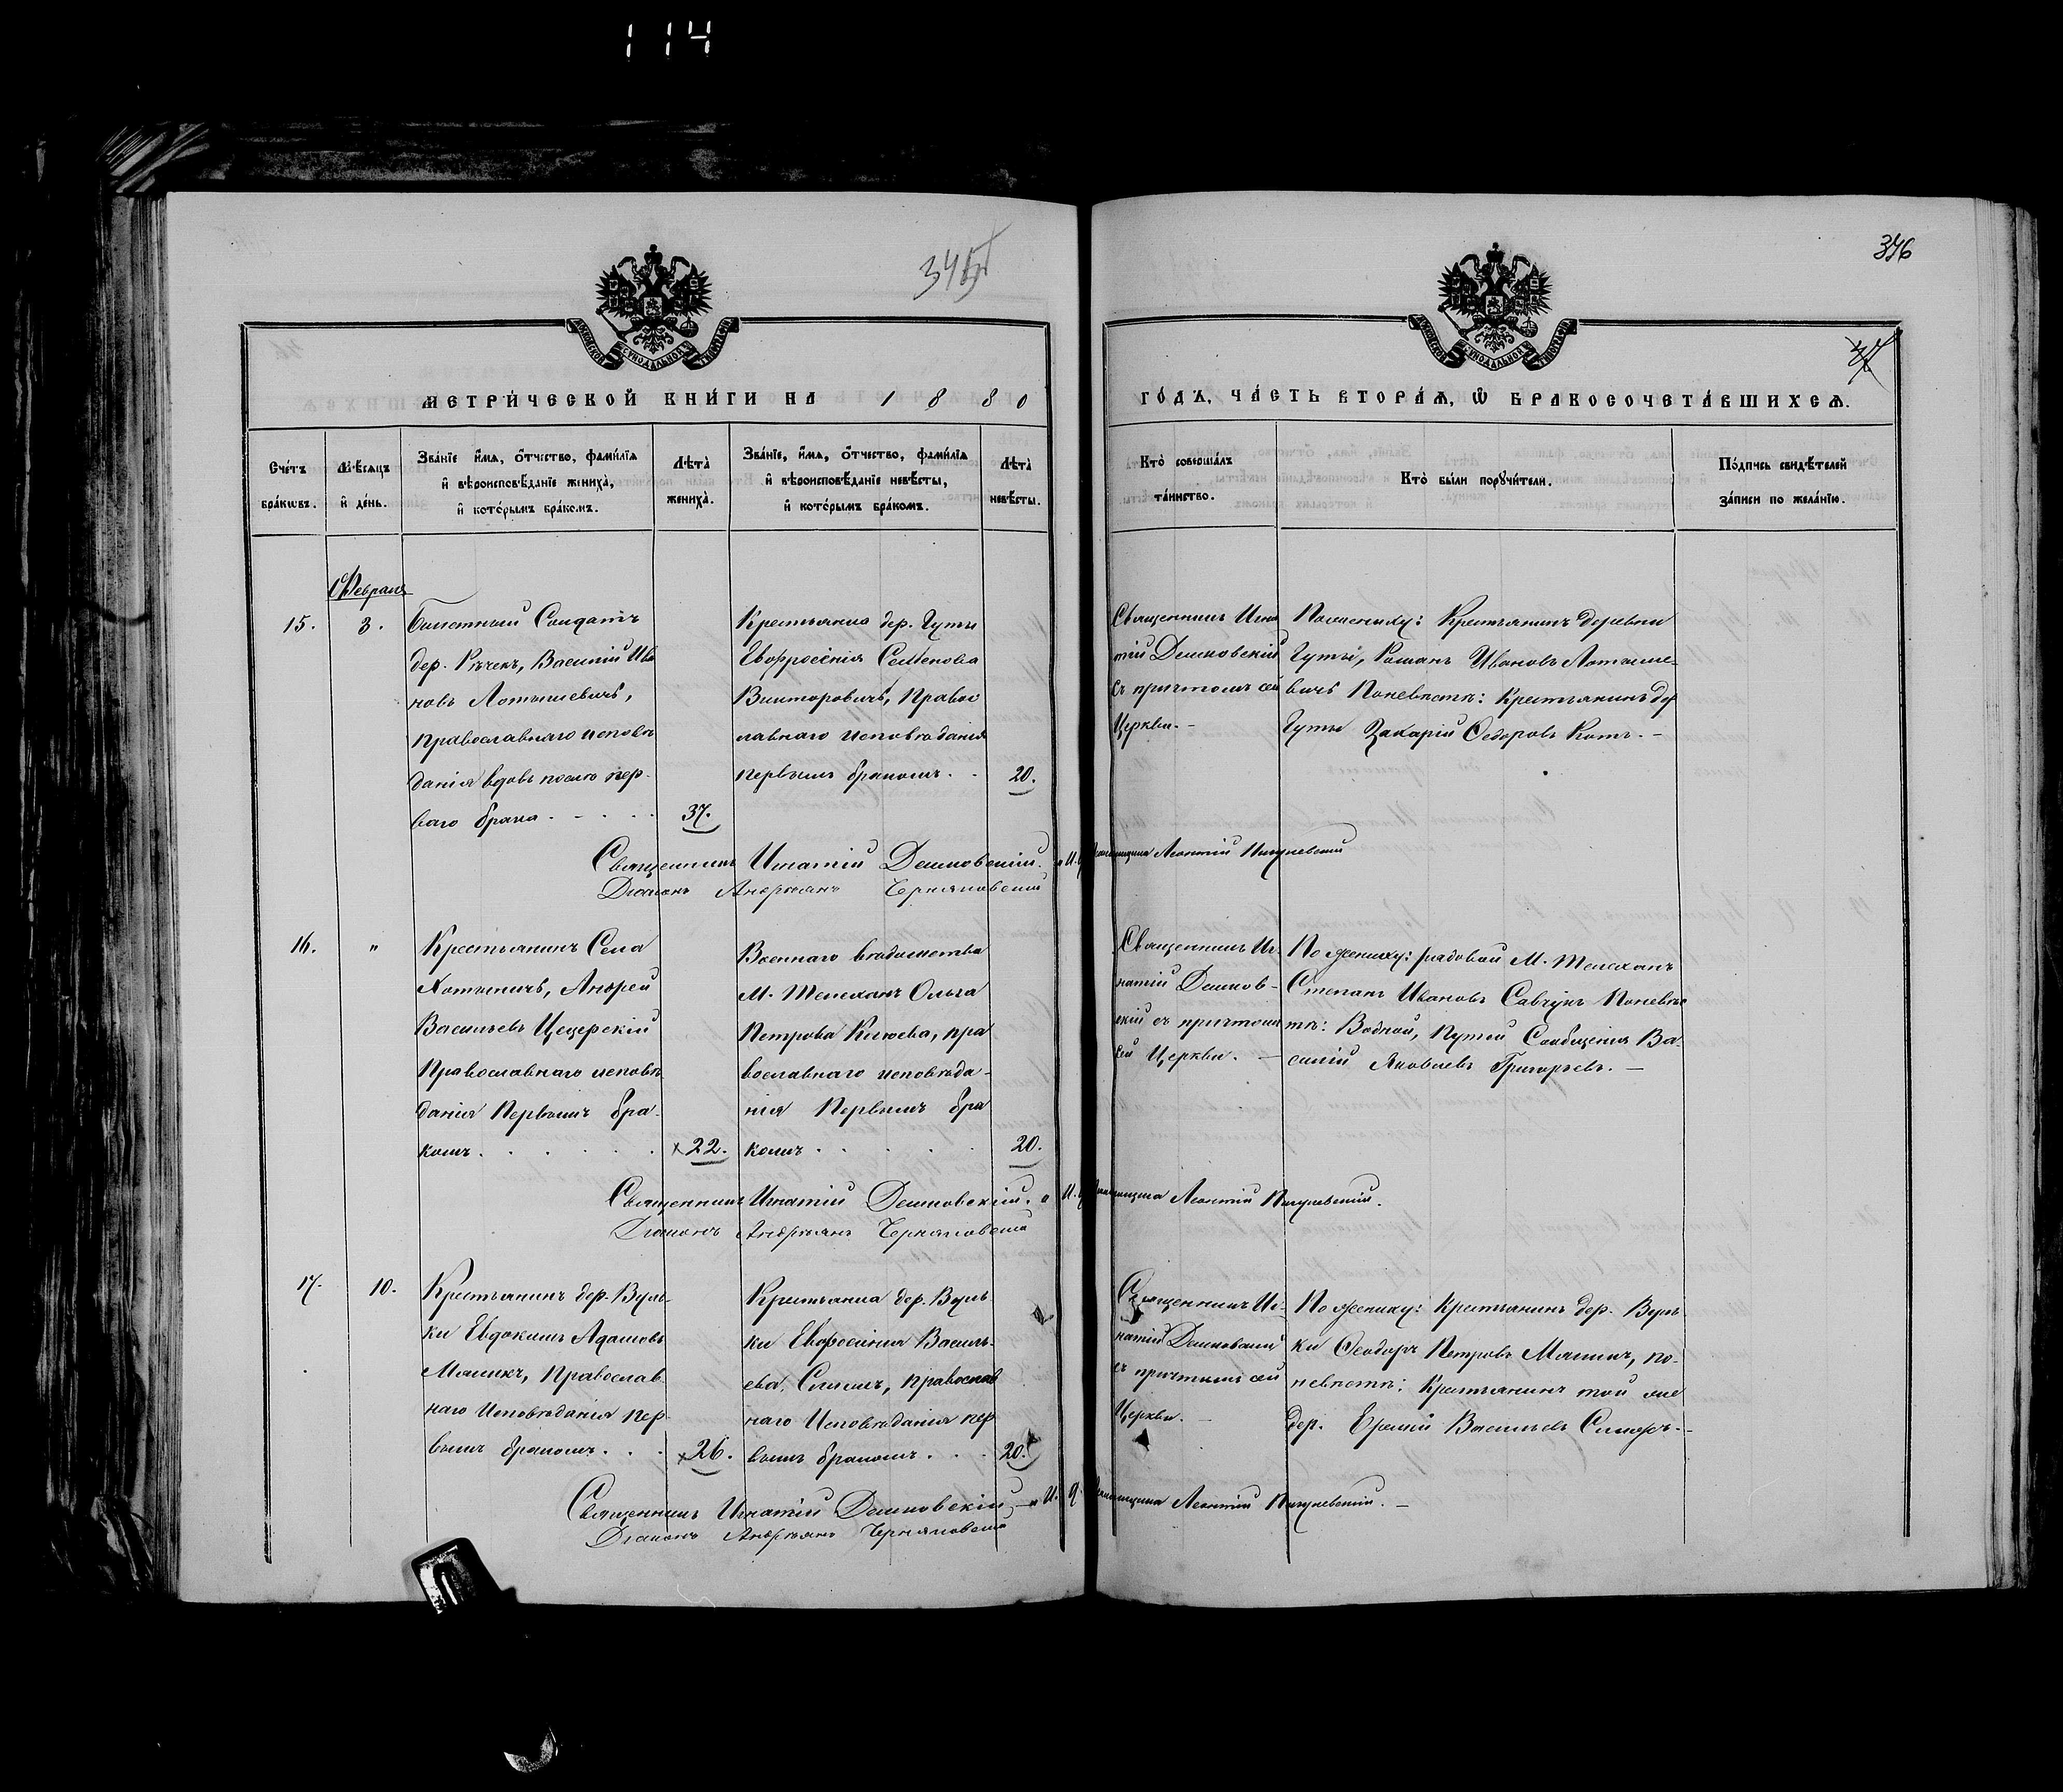 114
345
346
37
МОСКОВСКОЙ СѴНОДАЛЬНОЙ ТИПОГРАФІИ
МОСКОВСКОЙ СѴНОДАЛЬНОЙ ТИПОГРАФІИ
МЕТРИ́ЧЕСКОЙ КНИ́ГИ НА 1880
ГО́ДЪ, ЧА́СТЬ ВТОРА́Ѧ, Ѽ БРАКОСОЧЕТА́ВШИХСѦ.
Сче́тъ бра́кѡвъ.
Мѣ́сѧцъ и҆ де́нь.
Зва́нїе и҆́мѧ, ѻ҆́тчество, фами́лїѧ
и҆ вѣроисповѣ́данїе жениха̀,
и҆ кото́рымъ бра́комъ.
Лѣта̀ жениха̀.
Зва́нїе, и҆́мѧ, ѻ҆́тчество, фами́лїѧ
и҆ вѣроисповѣ́данїе невѣ́сты,
и҆ кото́рымъ бра́комъ.
Лѣта̀ невѣ́сты.
Кто̀ соверша́лъ
та́инство.
Кто̀ бы́ли порꙋчи́тели.
По́дпись свидѣ́телей
за́писи по жела́нїю.
Февраля
15.
3.
Билетный Солдатъ
дер. Рѣчекъ, Василій Ива
новъ Лотышевичъ,
православнаго исповѣ
данія вдовъ послѣ пер-
ваго брака . . . . .
37.
Крестьянка дер. Гуты
Евфросинія Семенова
Викторовичъ, Правос
лавнаго исповѣданія
первымъ бракомъ . .
20.
Священникъ Игна
тій Демковскій
съ причтомъ сей
Церкви. —
По жениху: Крестьянинъ деревни
Гуты, Романъ Ивановъ Лотыше-
вичъ Поневѣстѣ: Крестьянинъ дер
Гуты Захарій Федоровъ Котъ. —
Священникъ Игнатій Демковскій. и И. д. Псаломщика Леонтій Пигулевскій
Діаконъ Андреянъ Черняковскій
16.
"
Крестьянинъ Села
Хотыничъ, Андрей
Васильевъ Цецерскій
Православнаго исповѣ
данія Первымъ бра-
комъ . . . . . .
×22.
Военнаго вѣдомства
М. Телеханъ Ольга
Петрова Клюева, пра
вославнаго исповѣда-
нія Первымъ бра
комъ . . . . .
20.
Священникъ Иг-
натій Демков-
скій съ причтомъ
сей Церкви. —
По жениху: рядовой М. Телеханъ
Степанъ Ивановъ Савчукъ Поневѣс
тѣ: Водной, Путей Сообщенія Ва-
силій Яковлевъ Григорьевъ. —
Священникъ Игнатій Демковскій. и И. д. Псаломщика Леонтій Пигулевскій.
Діаконъ Андреянъ Черняковскій
17.
10.
Крестьянинъ дер. Вуль-
ки Евдокимъ Адамовъ
Малихъ, Православ
наго Исповѣданія пер-
вымъ бракомъ . . .
×26.
Крестьянка дер. Вуль-
ки Евфросинія Василь-
ева, православ
наго Исповѣданія пер
вымъ бракомъ . . .
20.
Священникъ Иг-
натій Демковскій
съ причтомъ сей
Церкви. —
По жениху: Крестьянинъ дер. Вуль-
ки Ѳеодоръ Петровъ Малихъ, по-
невѣстѣ: Крестьянинъ той же
дер. Еремій Васильевъ
Священникъ Игнатій Демковскій — и И. д. Псаломщика Леонтій Пигулевскій. —
Діаконъ Андреянъ Черняковскій